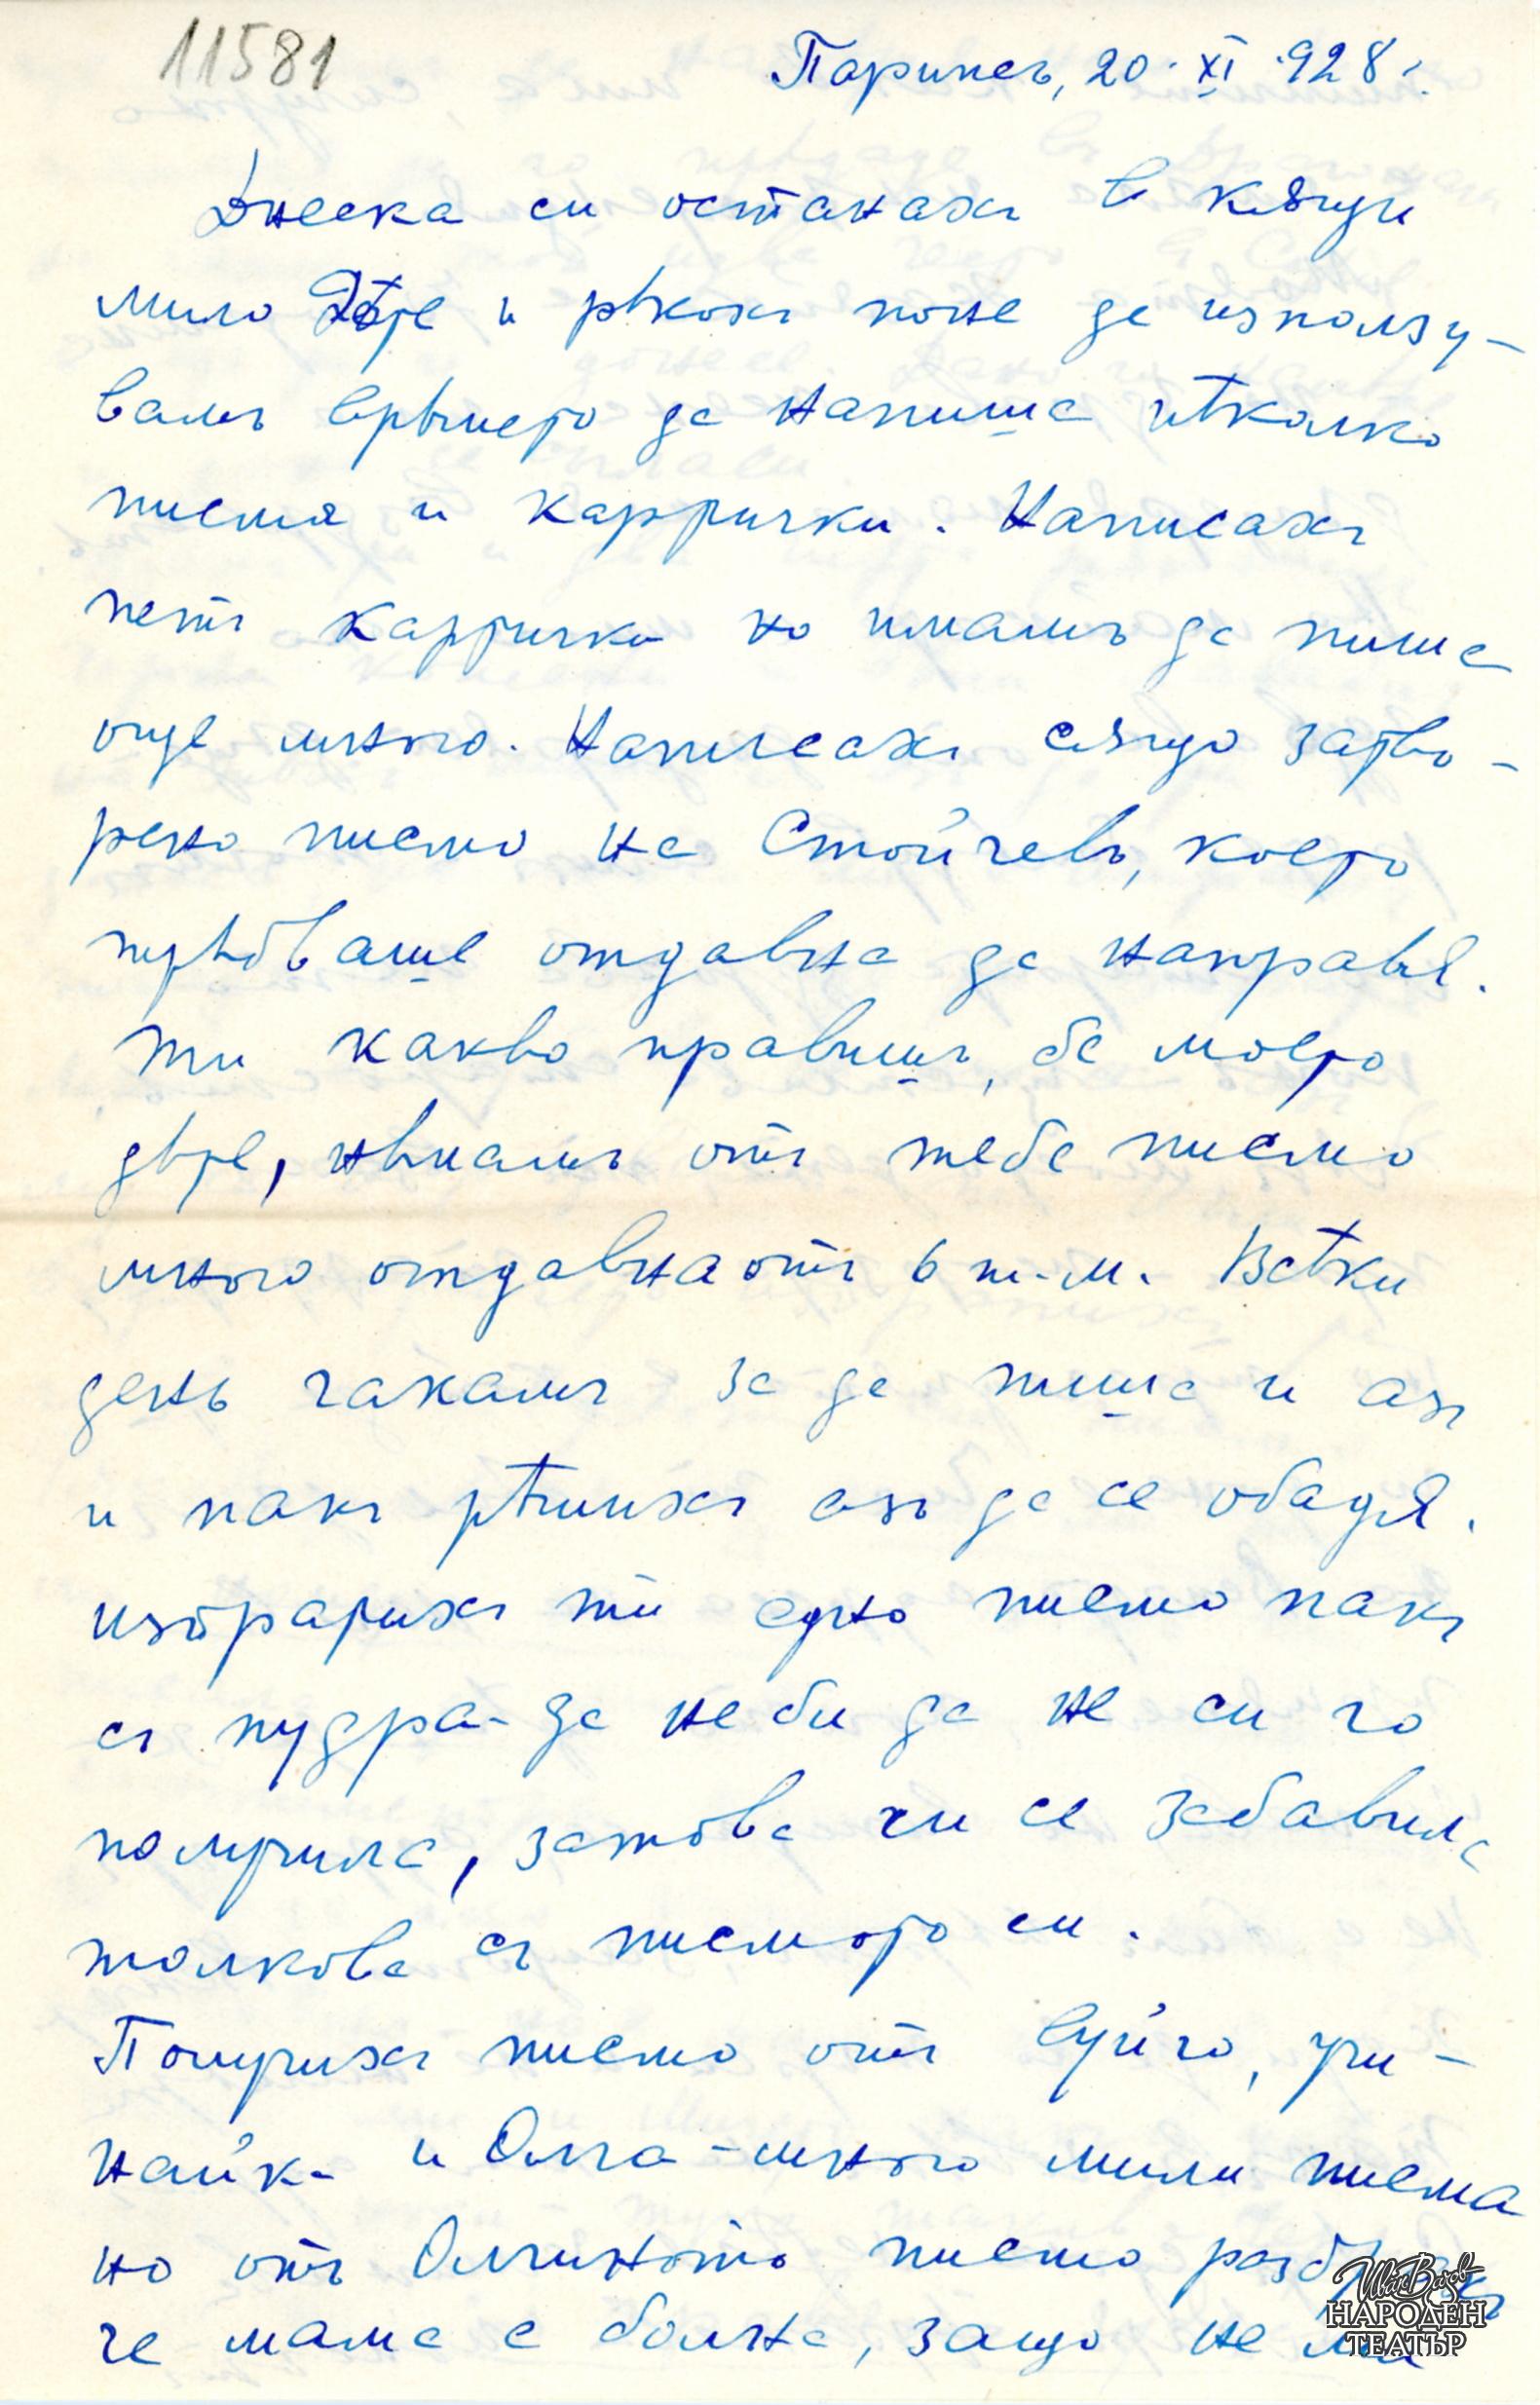 11581
Парижъ, 20.XI.928 г.
Днеска си останахъ в кѫщи
мило Дѣте и рѣкохъ поне да използу-
вамъ врѣмето да напиша нѣколко
писма и картички. Написахъ
петь картички но имамъ да пиша
още много. Написахъ сѫщо затво-
рено писмо на Стойчевъ, което
трѣбваше отдавна да направѭ.
Ти какво правишъ, бе моето
дѣте, нѣмамъ отъ тебе писмо
много отдавна отъ 6 т.м. Всѣки
день чакамъ за да пиша и азъ
и пакъ рѣшихъ азъ да се обадѭ.
Изпратихъ ти едно писмо пакъ
съ пудра - да не би да не си го
получила, затова ли се забавила
толкова съ писмото си.
Получихъ писмо отъ вуйчо,
и Олга - много мили писма
но отъ Олгиното писмо разбрахъ
че мама е болна, защо не ми
Иван Вазов
НАРОДЕН
ТЕАТЪР